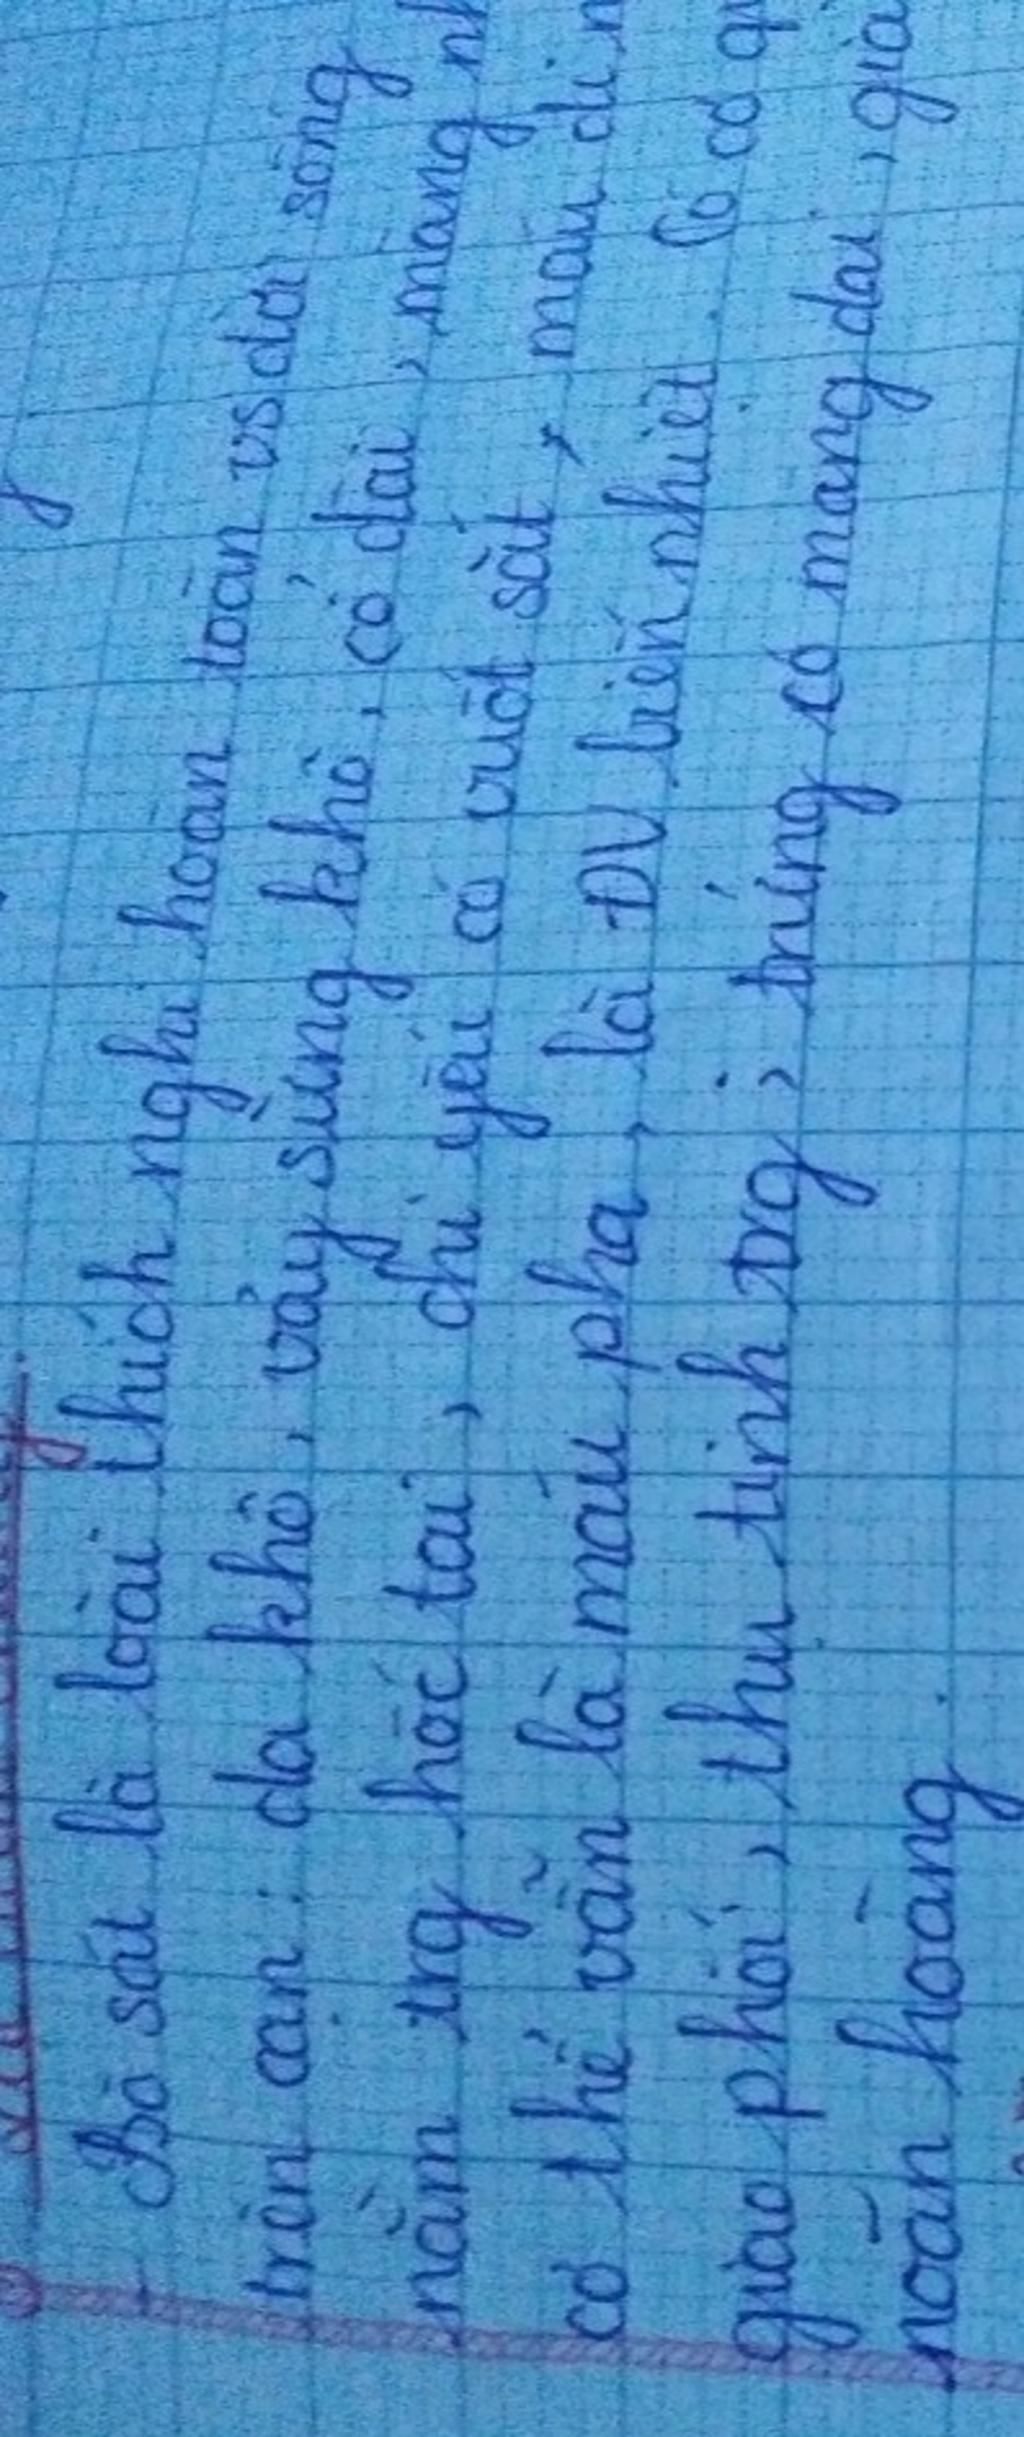 - Bò sát là loài thích nghi hoàn toàn vs đời sống
trên cạn: da khô, vảy sừng khô, cổ dài, màng nh
nằm trg hốc tai, chi yếu có vuốt sắt, máu đi n
có thể vẫn là máu pha, là ĐV biến nhiệt. Có cơ qu
giao phối, thụ tinh trg, trứng có màng dai, già
noãn hoàng.